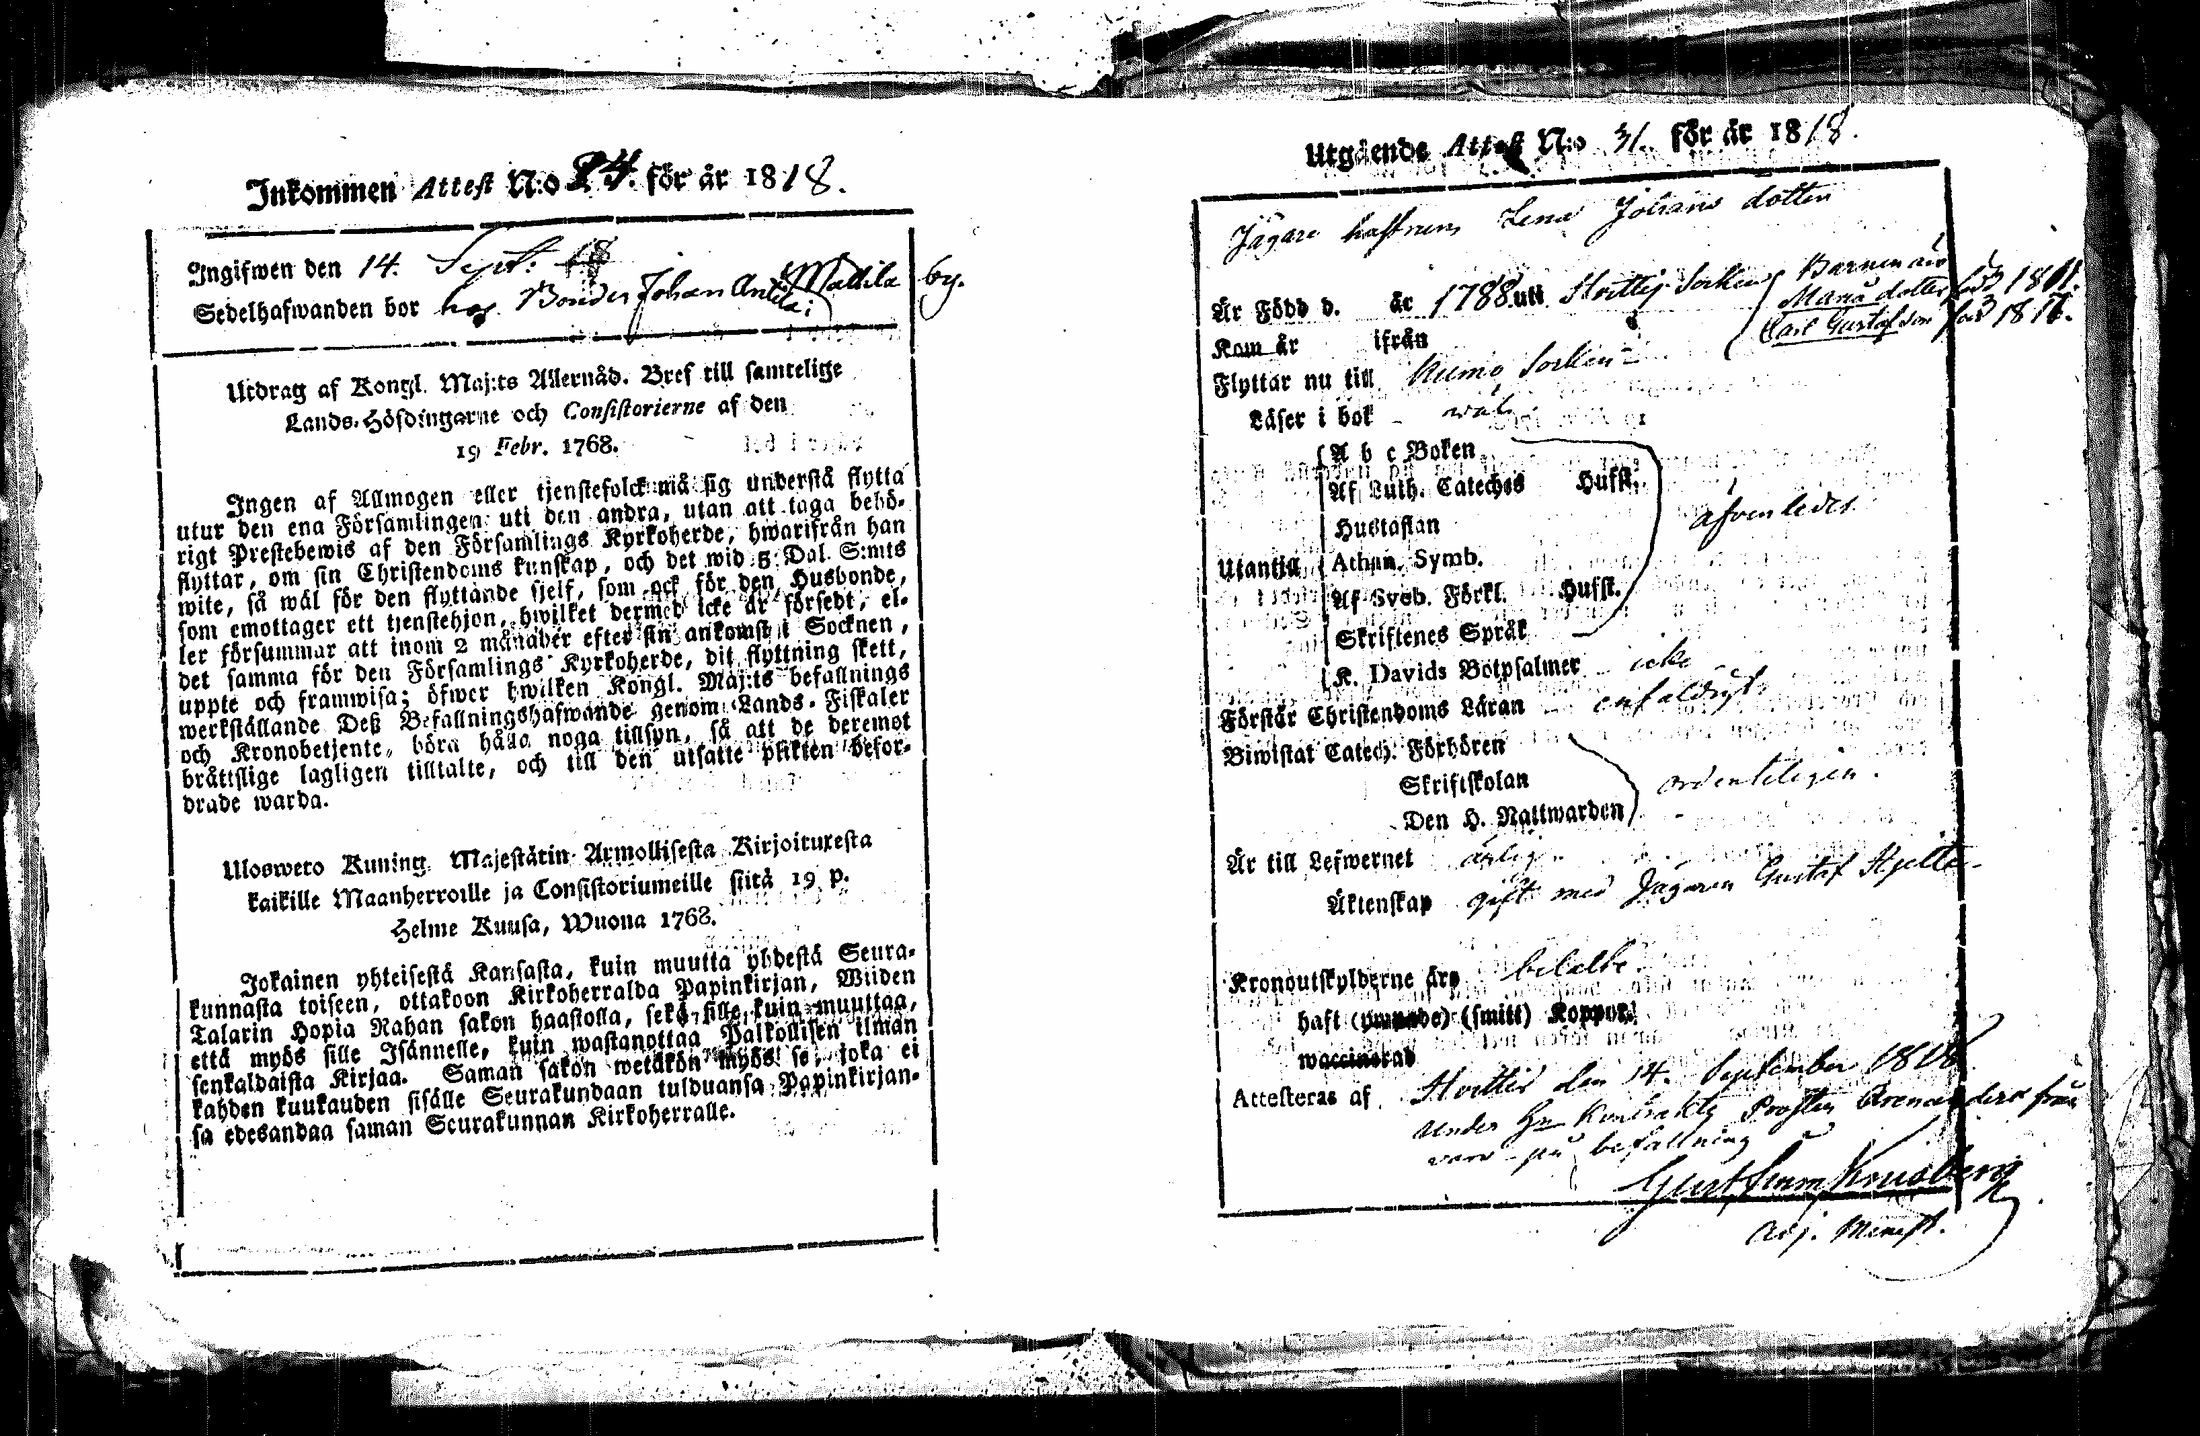 Inkommen Attest N:o 24. för år 1818.
Ingifwen den 14. Sept: 18
Sedelhafwanden bor hos Bonden Johan Anttila i Mattila by.
Utdrag af Kongl. Maj:ts Allernåd. Bref till samtelige
Lands-Höfdingarne och Consistorierne af den
19 Febr. 1768.
Ingen af Allmogen eller tjenstefolck må sig understå flytta
utur den ena Församlingen uti den andra, utan att taga behö-
rigt Prestebewis af den Församlings Kyrkoherde, hwarifrån han
flyttar, om sin Christendoms kunskap, och det wid 5 Dal. S:mts
wite, så wäl för den flyttande sjelf, som ock för den Husbonde,
som emottager ett tjenstehjon, hwilket dermed icke är försedt, el-
ler försummar att inom 2 månader efter sin ankomst i Socknen,
det samma för den Församlings Kyrkoherde, dit flyttning skett,
uppte och framwisa; öfwer hwilken Kongl. Maj:ts befallnings
werkställande Deß Befallningshafwande genom Lands-Fiskaler
och Kronobetjente, böra hålla noga tillsyn, så att de deremot
bråttslige lagligen tilltalte, och till den utsatte plikten befor-
drade warda.
Ulosweto Kuning. Majestätin Armollisesta Kirjoituxesta
kaikille Maanherroille ja Consistoriumeille siitä 19 p.
Helme Kuusa, Wuona 1768.
Jokainen yhteisestä Kansasta, kuin muutta yhdestä Seura-
kunnasta toiseen, ottakoon Kirkoherralda Papinkirjan, Wiiden
Talarin Hopia Rahan sakon haastolla, sekä sille kuin muuttaa,
että myös sille Isännelle, kuin wastanottaa Palkollisen ilman
senkaldaista Kirjaa. Saman sakon wetäkön myös se, joka ei
kahden kuukauden sisälle Seurakundaan tulduansa Papinkirjan-
sa edesandaa saman Seurakunnan Kirkoherralle.
Utgående Attest N:o 31. för år 1818.
Jägare hustrun Lena Johans dotter
Är Född d. år 1788. uti Socken
Barnen
Maria dotter född
Carl Gustaf son född
Kom år ifrån
Flyttar nu till Kumo Socken
Läser i bok wäl
A b c Boken
Af Luth. Cateches Hufst.
Hustaflan
Utantill Athan. Symb. äfvenledes
Af Sveb. Förkl. Hufst.
Skriftenes Språk
K. Davids Botpsalmer icke
Förstår Christendoms Läran enfaldigt
Biwistat Catech. Förhören
Skriftskolan ordenteligen.
Den H. Nattwarden
Är till Lefwernet ärlig
Äktenskap gift med Jägaren Gustaf
Kronoutskylderne äro betalte
haft (smitt) Koppor.
waccinerad
Attesteras af den 14. September 1818
under Hr Kontrakts Prosten från
varo på befallning
Adj. Minist.